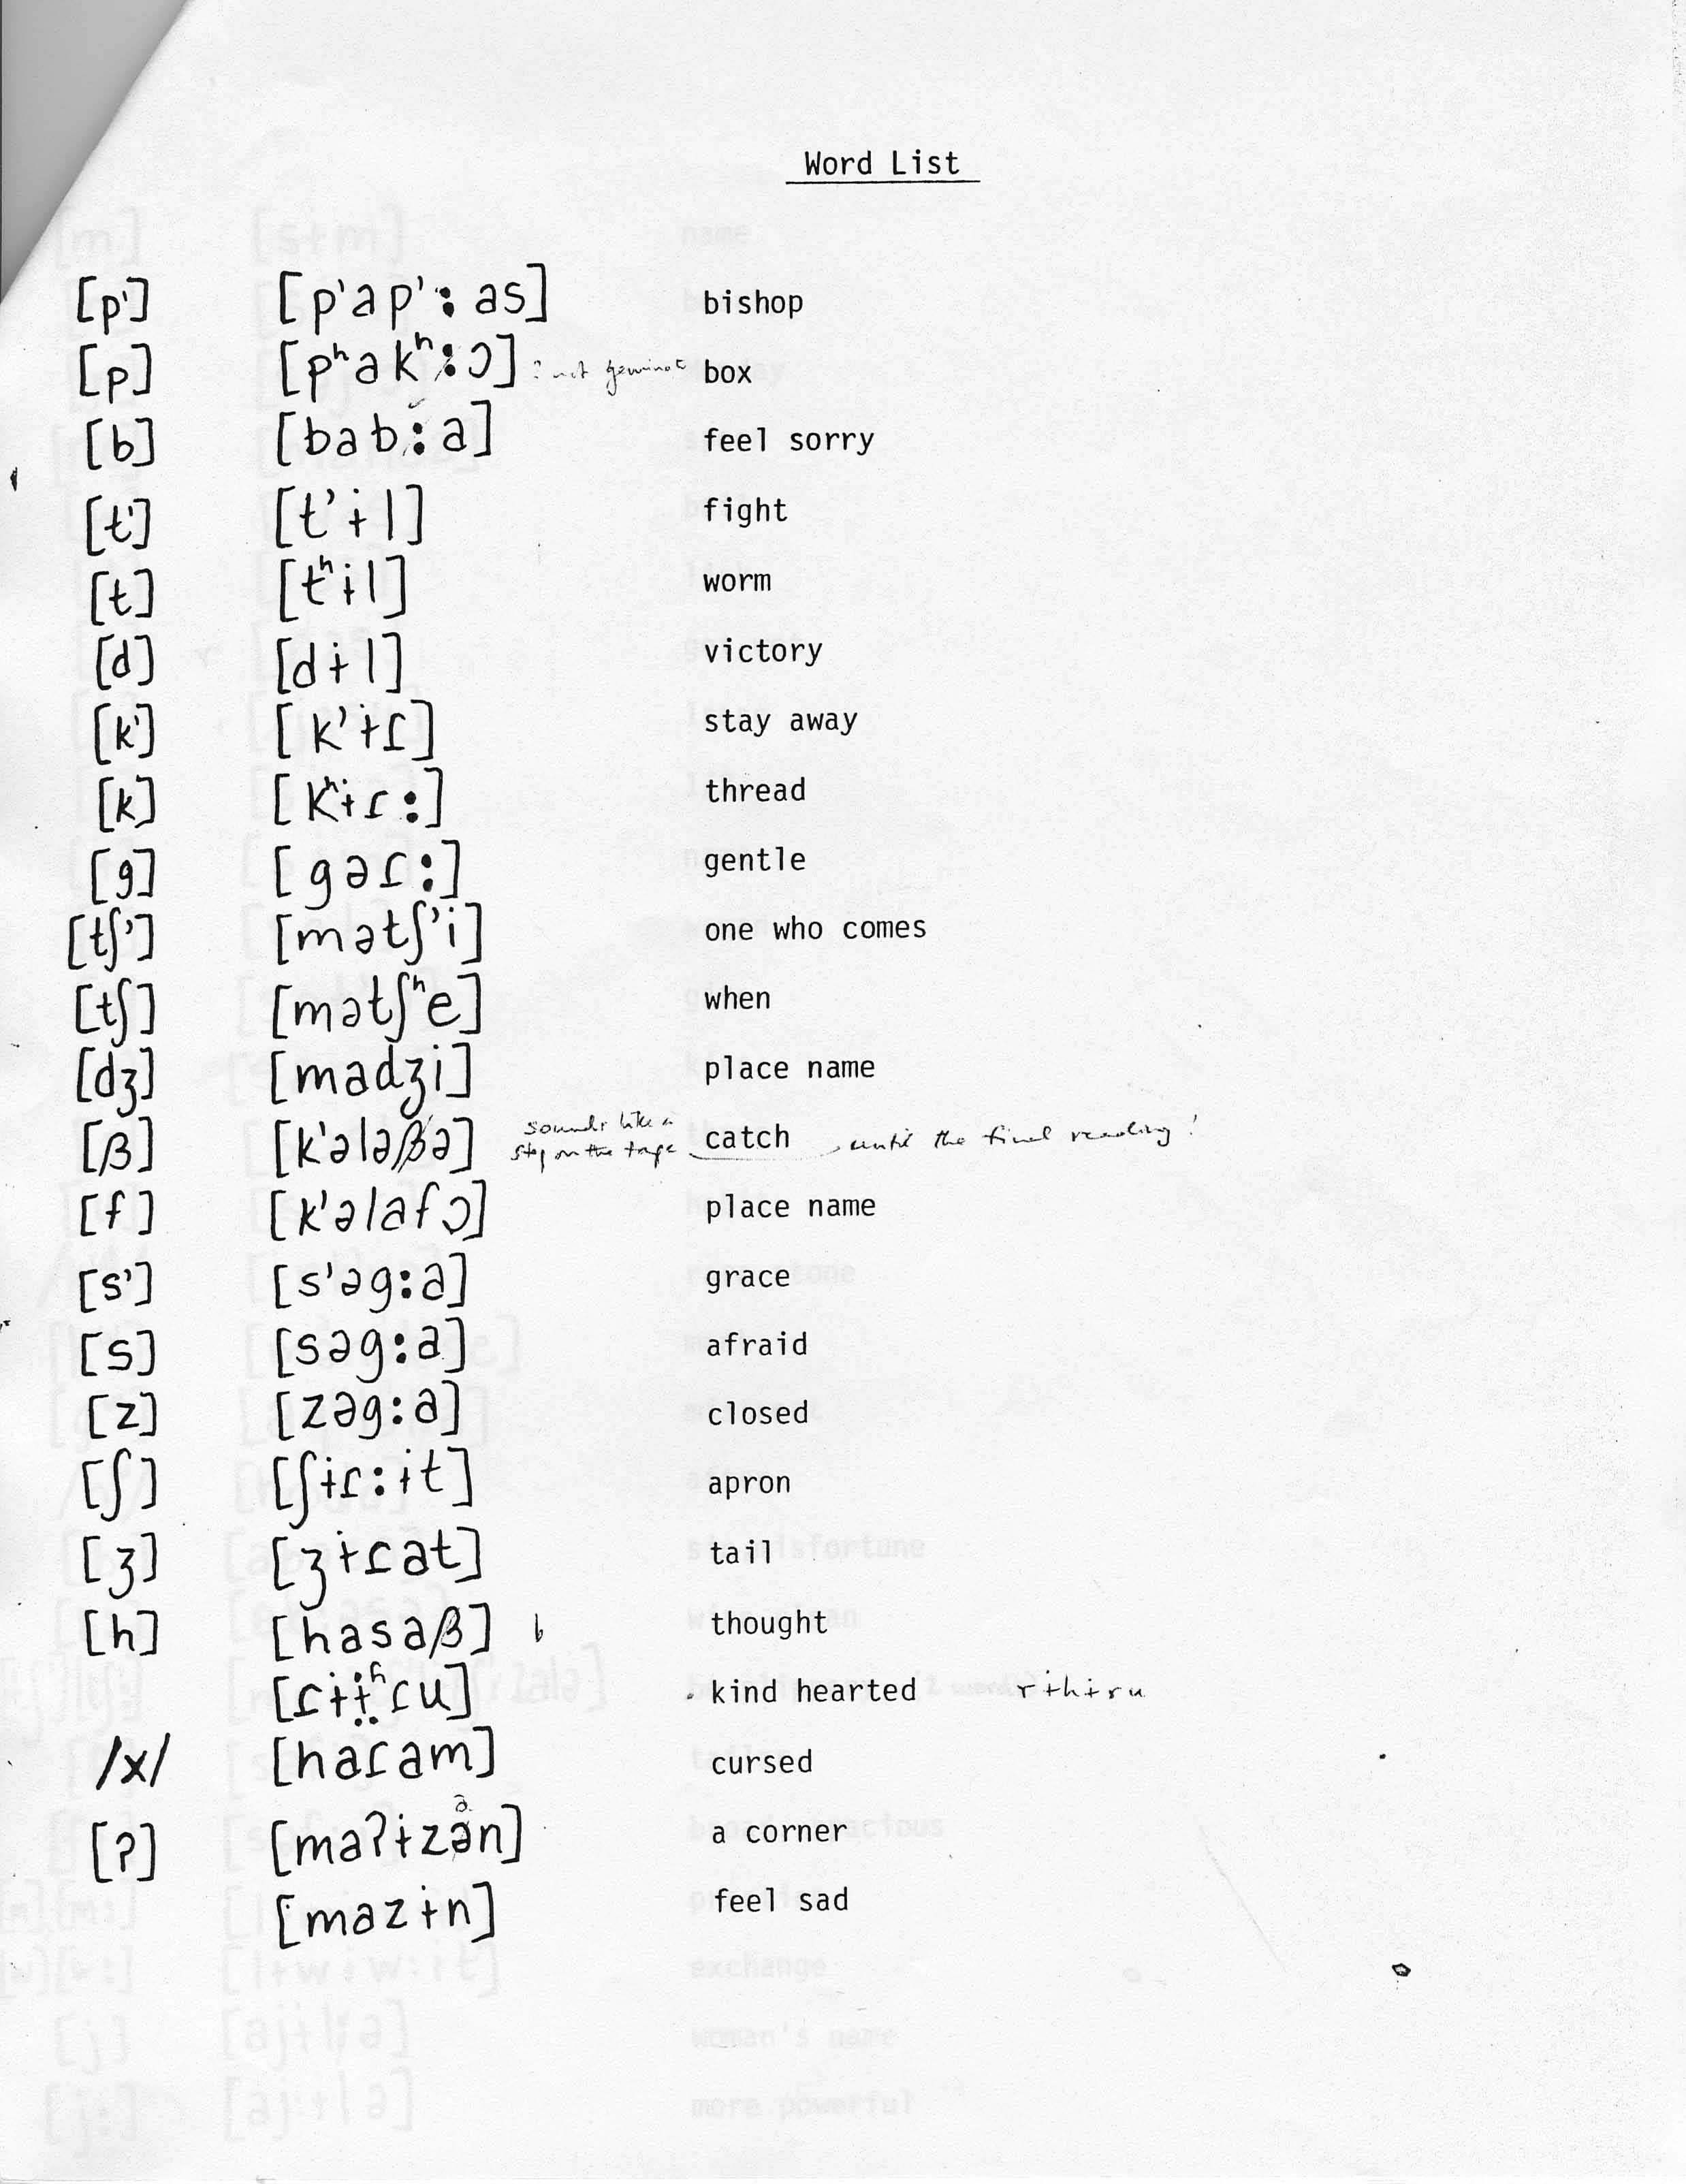 Word List
[p'] [p'ap':as] bishop
[p] [pʰakʰ:ɔ] ? not geminate box
[b] [bab:a] feel sorry
[t'] [t'ɨl] fight
[t] [tʰɨl] worm
[d] [dɨl] victory
[k'] [k'ɨɾ] stay away
[k] [kʰɨɾ:] thread
[g] [gəɾ:] gentle
[tʃ'] [mətʃ'i] one who comes
[tʃ] [mətʃʰe] when
[dʒ] [madʒi] place name
[β] [k'ələβə] sounds like a stop on the tape catch until the final reading!
[f] [k'əlafɔ] place name
[s'] [s'əg:a] grace
[s] [səg:a] afraid
[z] [zəg:a] closed
[ʃ] [ʃɨɾ:ɨt] apron
[ʒ] [ʒɨɾat] tail
[h] [hasaβ] b thought
[ɾɨɨ̤ʰɾu] kind hearted rɨhɨru
/x/ [haɾam] cursed
[ʔ] [maʔɨzən] a corner
[mazɨn] feel sad